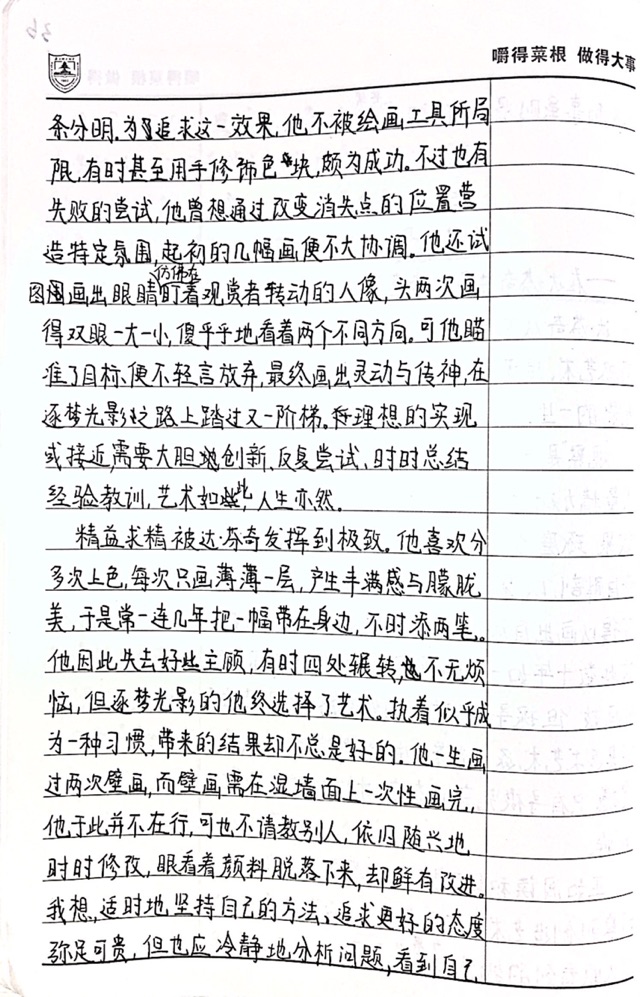 36
嚼得菜根 做得大事
条分明。为追求这一效果，他不被绘画工具所局
限，有时甚至用手修饰色块，颇为成功。不过也有
失败的尝试，他曾想通过改变消失点的位置营
造特定氛围，起初的几幅画便不大协调。他还试
图画出眼睛仿佛在盯着观赏者转动的人像，头两次画
得双眼一大一小，傻乎乎地看着两个不同方向。可他瞄
准了目标，便不轻言放弃，最终画出灵动与传神，在
逐梦光影之路上踏过又一阶梯。理想的实现
或接近，需要大胆地创新、反复尝试、时时总结
经验教训，艺术如此，人生亦然。
精益求精被达·芬奇发挥到极致。他喜欢分
多次上色，每次只画薄薄一层，产生丰满感与朦胧
美，于是常一连几年把一幅带在身边，不时添两笔。
他因此失去好些主顾，有时四处辗转，不无烦
恼，但逐梦光影的他终选择了艺术。执着似乎成
为一种习惯，带来的结果却不总是好的。他一生画
过两次壁画，而壁画需在湿墙面上一次性画完，
他于此并不在行，可也不请教别人，依旧随兴地
时时修改，眼看着颜料脱落下来，却鲜有改进。
我想，适时地坚持自己的方法、追求更好的态度
弥足可贵，但也应冷静地分析问题，看到自己